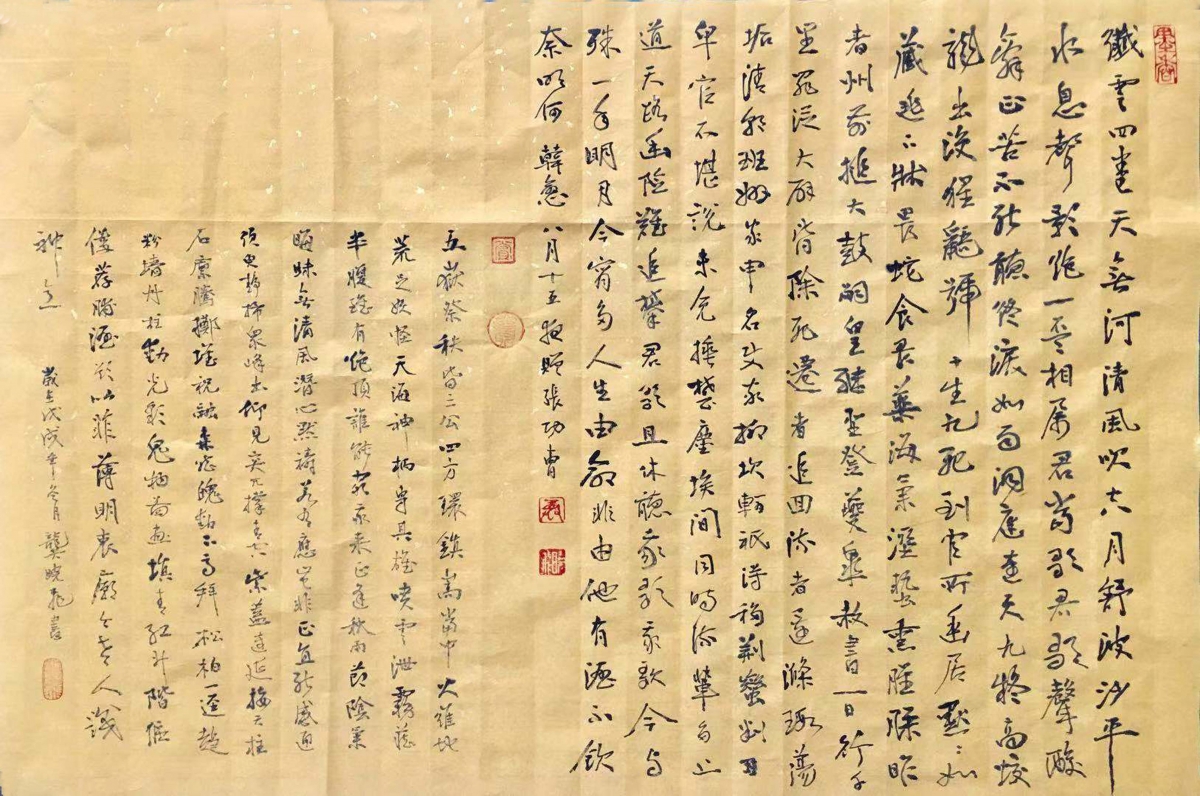 纖雲四卷天無河清風吹空月舒波沙平
水息聲影絕一杯相屬君當歌君歌聲酸
辭正苦不能聽終淚如雨洞庭連天九疑高蛟
龍出沒猩鼯號十生九死到官所幽居默默如
藏逃下牀畏蛇食畏藥海氣濕蟄熏腥臊昨
者州前搥大鼓嗣皇繼聖登夔皋赦書一日行千
里罪從大辟皆除死遷者追回流者還滌瑕蕩
垢清朝班州家申名使家抑坎軻祇得移荊蠻判司
卑官不堪說未免捶楚塵埃間同時流輩多上
道天路幽險難追攀君歌且休聽我歌我歌今与
殊一年明月今宵多人生由命非由他有酒不飲
奈明何 韓愈 八月十五夜贈張功曹
五嶽祭秩皆三公四方環鎮嵩當中火維地
荒足妖怪天假神柄專其雄噴雲泄霧藏
半腹雖有絕頂誰能窮我來正逢秋雨節陰氣
晦昧無清風潛心默禱若有應豈非正直能感通
須臾靜掃衆峰出仰見突兀撐青空紫蓋連延接天柱
石廩騰擲堆祝融森然魄動下馬拜松柏一逕趨
粉牆丹柱動光彩鬼物圖畫填青紅升階傴
僂薦脯酒欲以菲薄明衷廟令老人識
神意
歲在戊戌年冬月龔曉飛書